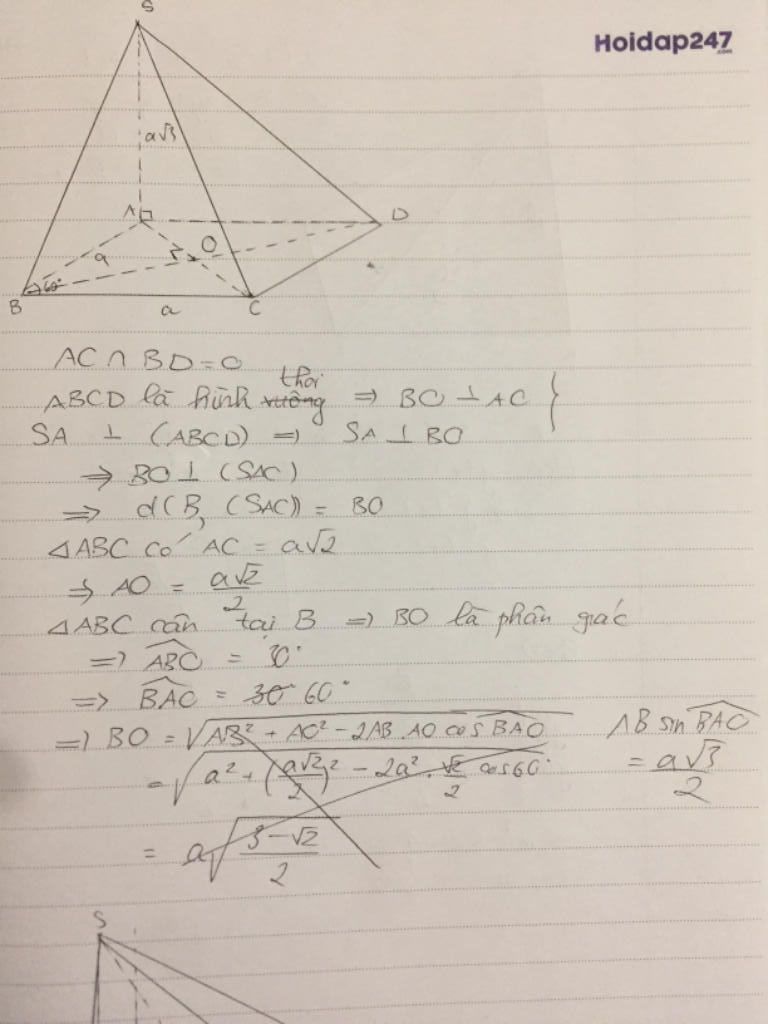 Hoidap247
.com
S
a√3
A
D
O
a
60°
B
a
C
AC ∩ BD = O
thoi
ABCD là hình vuông ⇒ BO ⊥ AC }
SA ⊥ (ABCD) ⇒ SA ⊥ BO
⇒ BO ⊥ (SAC)
⇒ d(B, (SAC)) = BO
△ABC có AC = a√2
⇒ AO = a√2/2
△ABC cân tại B ⇒ BO là phân giác
⇒ ABO = 30°
⇒ BAO = 30° 60°
⇒ BO = √AB² + AO² - 2AB.AO cos BAO AB sin BAO
= √a² + (a√2/2)² - 2a².√2/2 cos60° = a√3/2
= a√3-√2/2
S